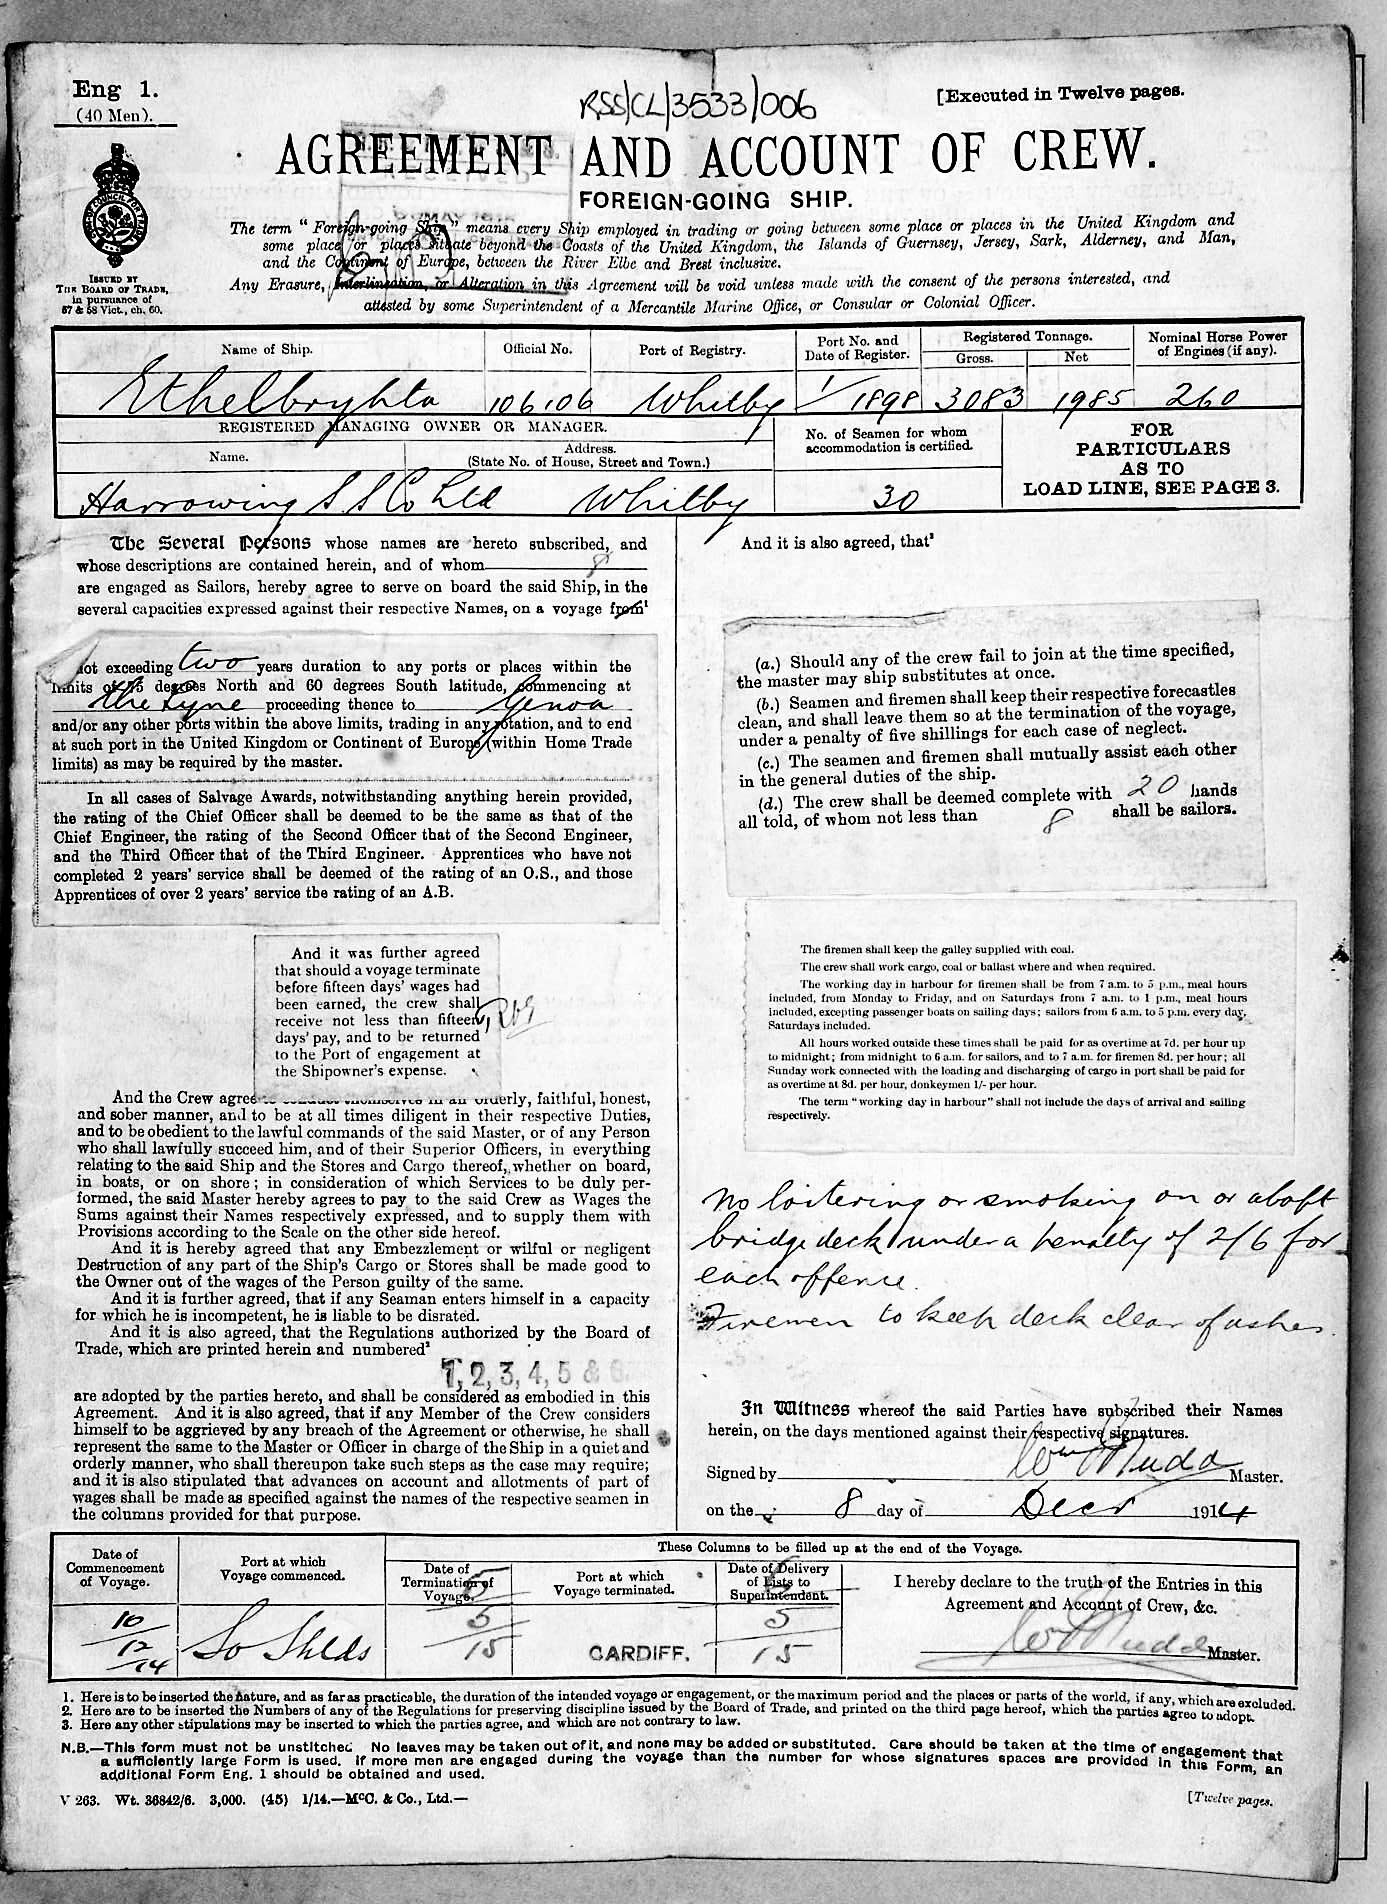 Eng 1.
(40 Men).
RSS/CL/3533/006
[Executed in Twelve pages.
AGREEMENT AND ACCOUNT OF CREW.
FOREIGN-GOING SHIP.
ISSUED BY
THE BOARD OF TRADE,
in pursuance of
57 & 58 Vict., ch. 60.
The term "Foreign-going Ship" means every Ship employed in trading or going between some place or places in the United Kingdom and
some place or places situate beyond the Coasts of the United Kingdom, the Islands of Guernsey, Jersey, Sark, Alderney, and Man,
and the Continent of Europe, between the River Elbe and Brest inclusive.
Any Erasure, Interlineation, or Alteration in this Agreement will be void unless made with the consent of the persons interested, and
attested by some Superintendent of a Mercantile Marine Office, or Consular or Colonial Officer.
Name of Ship. Official No. Port of Registry. Port No. and Date of Register. Registered Tonnage. Gross. Net Nominal Horse Power of Engines (if any).
Ethelbryhta 106106 Whitby 1/1898 3083 1985 260
REGISTERED MANAGING OWNER OR MANAGER.
Name. Address. (State No. of House, Street and Town.)
No. of Seamen for whom
accommodation is certified.
FOR
PARTICULARS
AS TO
LOAD LINE, SEE PAGE 3.
Harrowing S.S Co Ltd Whitby 30
The Several Persons whose names are hereto subscribed, and
whose descriptions are contained herein, and of whom 8
are engaged as Sailors, hereby agree to serve on board the said Ship, in the
several capacities expressed against their respective Names, on a voyage from¹
not exceeding two years duration to any ports or places within the
limits of 75 degrees North and 60 degrees South latitude, commencing at
the Tyne proceeding thence to Genoa
and/or any other ports within the above limits, trading in any rotation, and to end
at such port in the United Kingdom or Continent of Europe (within Home Trade
limits) as may be required by the master.
In all cases of Salvage Awards, notwithstanding anything herein provided,
the rating of the Chief Officer shall be deemed to be the same as that of the
Chief Engineer, the rating of the Second Officer that of the Second Engineer,
and the Third Officer that of the Third Engineer. Apprentices who have not
completed 2 years' service shall be deemed of the rating of an O.S., and those
Apprentices of over 2 years' service the rating of an A.B.
And it was further agreed
that should a voyage terminate
before fifteen days' wages had
been earned, the crew shall
receive not less than fifteen
days' pay, and to be returned
to the Port of engagement at
the Shipowner's expense.
And the Crew agree to conduct themselves in an orderly, faithful, honest,
and sober manner, and to be at all times diligent in their respective Duties,
and to be obedient to the lawful commands of the said Master, or of any Person
who shall lawfully succeed him, and of their Superior Officers, in everything
relating to the said Ship and the Stores and Cargo thereof, whether on board,
in boats, or on shore; in consideration of which Services to be duly per-
formed, the said Master hereby agrees to pay to the said Crew as Wages the
Sums against their Names respectively expressed, and to supply them with
Provisions according to the Scale on the other side hereof.
And it is hereby agreed that any Embezzlement or wilful or negligent
Destruction of any part of the Ship's Cargo or Stores shall be made good to
the Owner out of the wages of the Person guilty of the same.
And it is further agreed, that if any Seaman enters himself in a capacity
for which he is incompetent, he is liable to be disrated.
And it is also agreed, that the Regulations authorized by the Board of
Trade, which are printed herein and numbered²
1, 2, 3, 4, 5 & 6
are adopted by the parties hereto, and shall be considered as embodied in this
Agreement. And it is also agreed, that if any Member of the Crew considers
himself to be aggrieved by any breach of the Agreement or otherwise, he shall
represent the same to the Master or Officer in charge of the Ship in a quiet and
orderly manner, who shall thereupon take such steps as the case may require;
and it is also stipulated that advances on account and allotments of part of
wages shall be made as specified against the names of the respective seamen in
the columns provided for that purpose.
And it is also agreed, that³
(a.) Should any of the crew fail to join at the time specified,
the master may ship substitutes at once.
(b.) Seamen and firemen shall keep their respective forecastles
clean, and shall leave them so at the termination of the voyage,
under a penalty of five shillings for each case of neglect.
(c.) The seamen and firemen shall mutually assist each other
in the general duties of the ship.
(d.) The crew shall be deemed complete with 20 hands
all told, of whom not less than 8 shall be sailors.
The firemen shall keep the galley supplied with coal.
The crew shall work cargo, coal or ballast where and when required.
The working day in harbour for firemen shall be from 7 a.m. to 5 p.m., meal hours
included, from Monday to Friday, and on Saturdays from 7 a.m. to 1 p.m., meal hours
included, excepting passenger boats on sailing days; sailors from 6 a.m. to 5 p.m. every day,
Saturdays included.
All hours worked outside these times shall be paid for as overtime at 7d. per hour up
to midnight; from midnight to 6 a.m. for sailors, and to 7 a.m. for firemen 8d. per hour; all
Sunday work connected with the loading and discharging of cargo in port shall be paid for
as overtime at 8d. per hour, donkeymen 1/- per hour.
The term "working day in harbour" shall not include the days of arrival and sailing
respectively.
No loitering or smoking on or abaft
bridge deck under a penalty of 2/6 for
each offence.
Firemen to keep deck clear of ashes.
In Witness whereof the said Parties have subscribed their Names
herein, on the days mentioned against their respective signatures.
Signed by Wm Rudd Master.
on the 8 day of Decr 1914
Date of
Commencement
of Voyage.
Port at which
Voyage commenced.
These Columns to be filled up at the end of the Voyage.
Date of
Termination of
Voyage.
Port at which
Voyage terminated.
Date of Delivery
of Lists to
Superintendent.
I hereby declare to the truth of the Entries in this
Agreement and Account of Crew, &c.
10/12/14 So Shlds 5/5/15 CARDIFF. 6/5/15 Rudd Master.
1. Here is to be inserted the nature, and as far as practicable, the duration of the intended voyage or engagement, or the maximum period and the places or parts of the world, if any, which are excluded.
2. Here are to be inserted the Numbers of any of the Regulations for preserving discipline issued by the Board of Trade, and printed on the third page hereof, which the parties agree to adopt.
3. Here any other stipulations may be inserted to which the parties agree, and which are not contrary to law.
N.B.—This form must not be unstitched. No leaves may be taken out of it, and none may be added or substituted. Care should be taken at the time of engagement that
a sufficiently large Form is used. If more men are engaged during the voyage than the number for whose signatures spaces are provided in this Form, an
additional Form Eng. 1 should be obtained and used.
V 263. Wt. 36842/6. 3,000. (45) 1/14.—McC. & Co., Ltd.—
[Twelve pages.